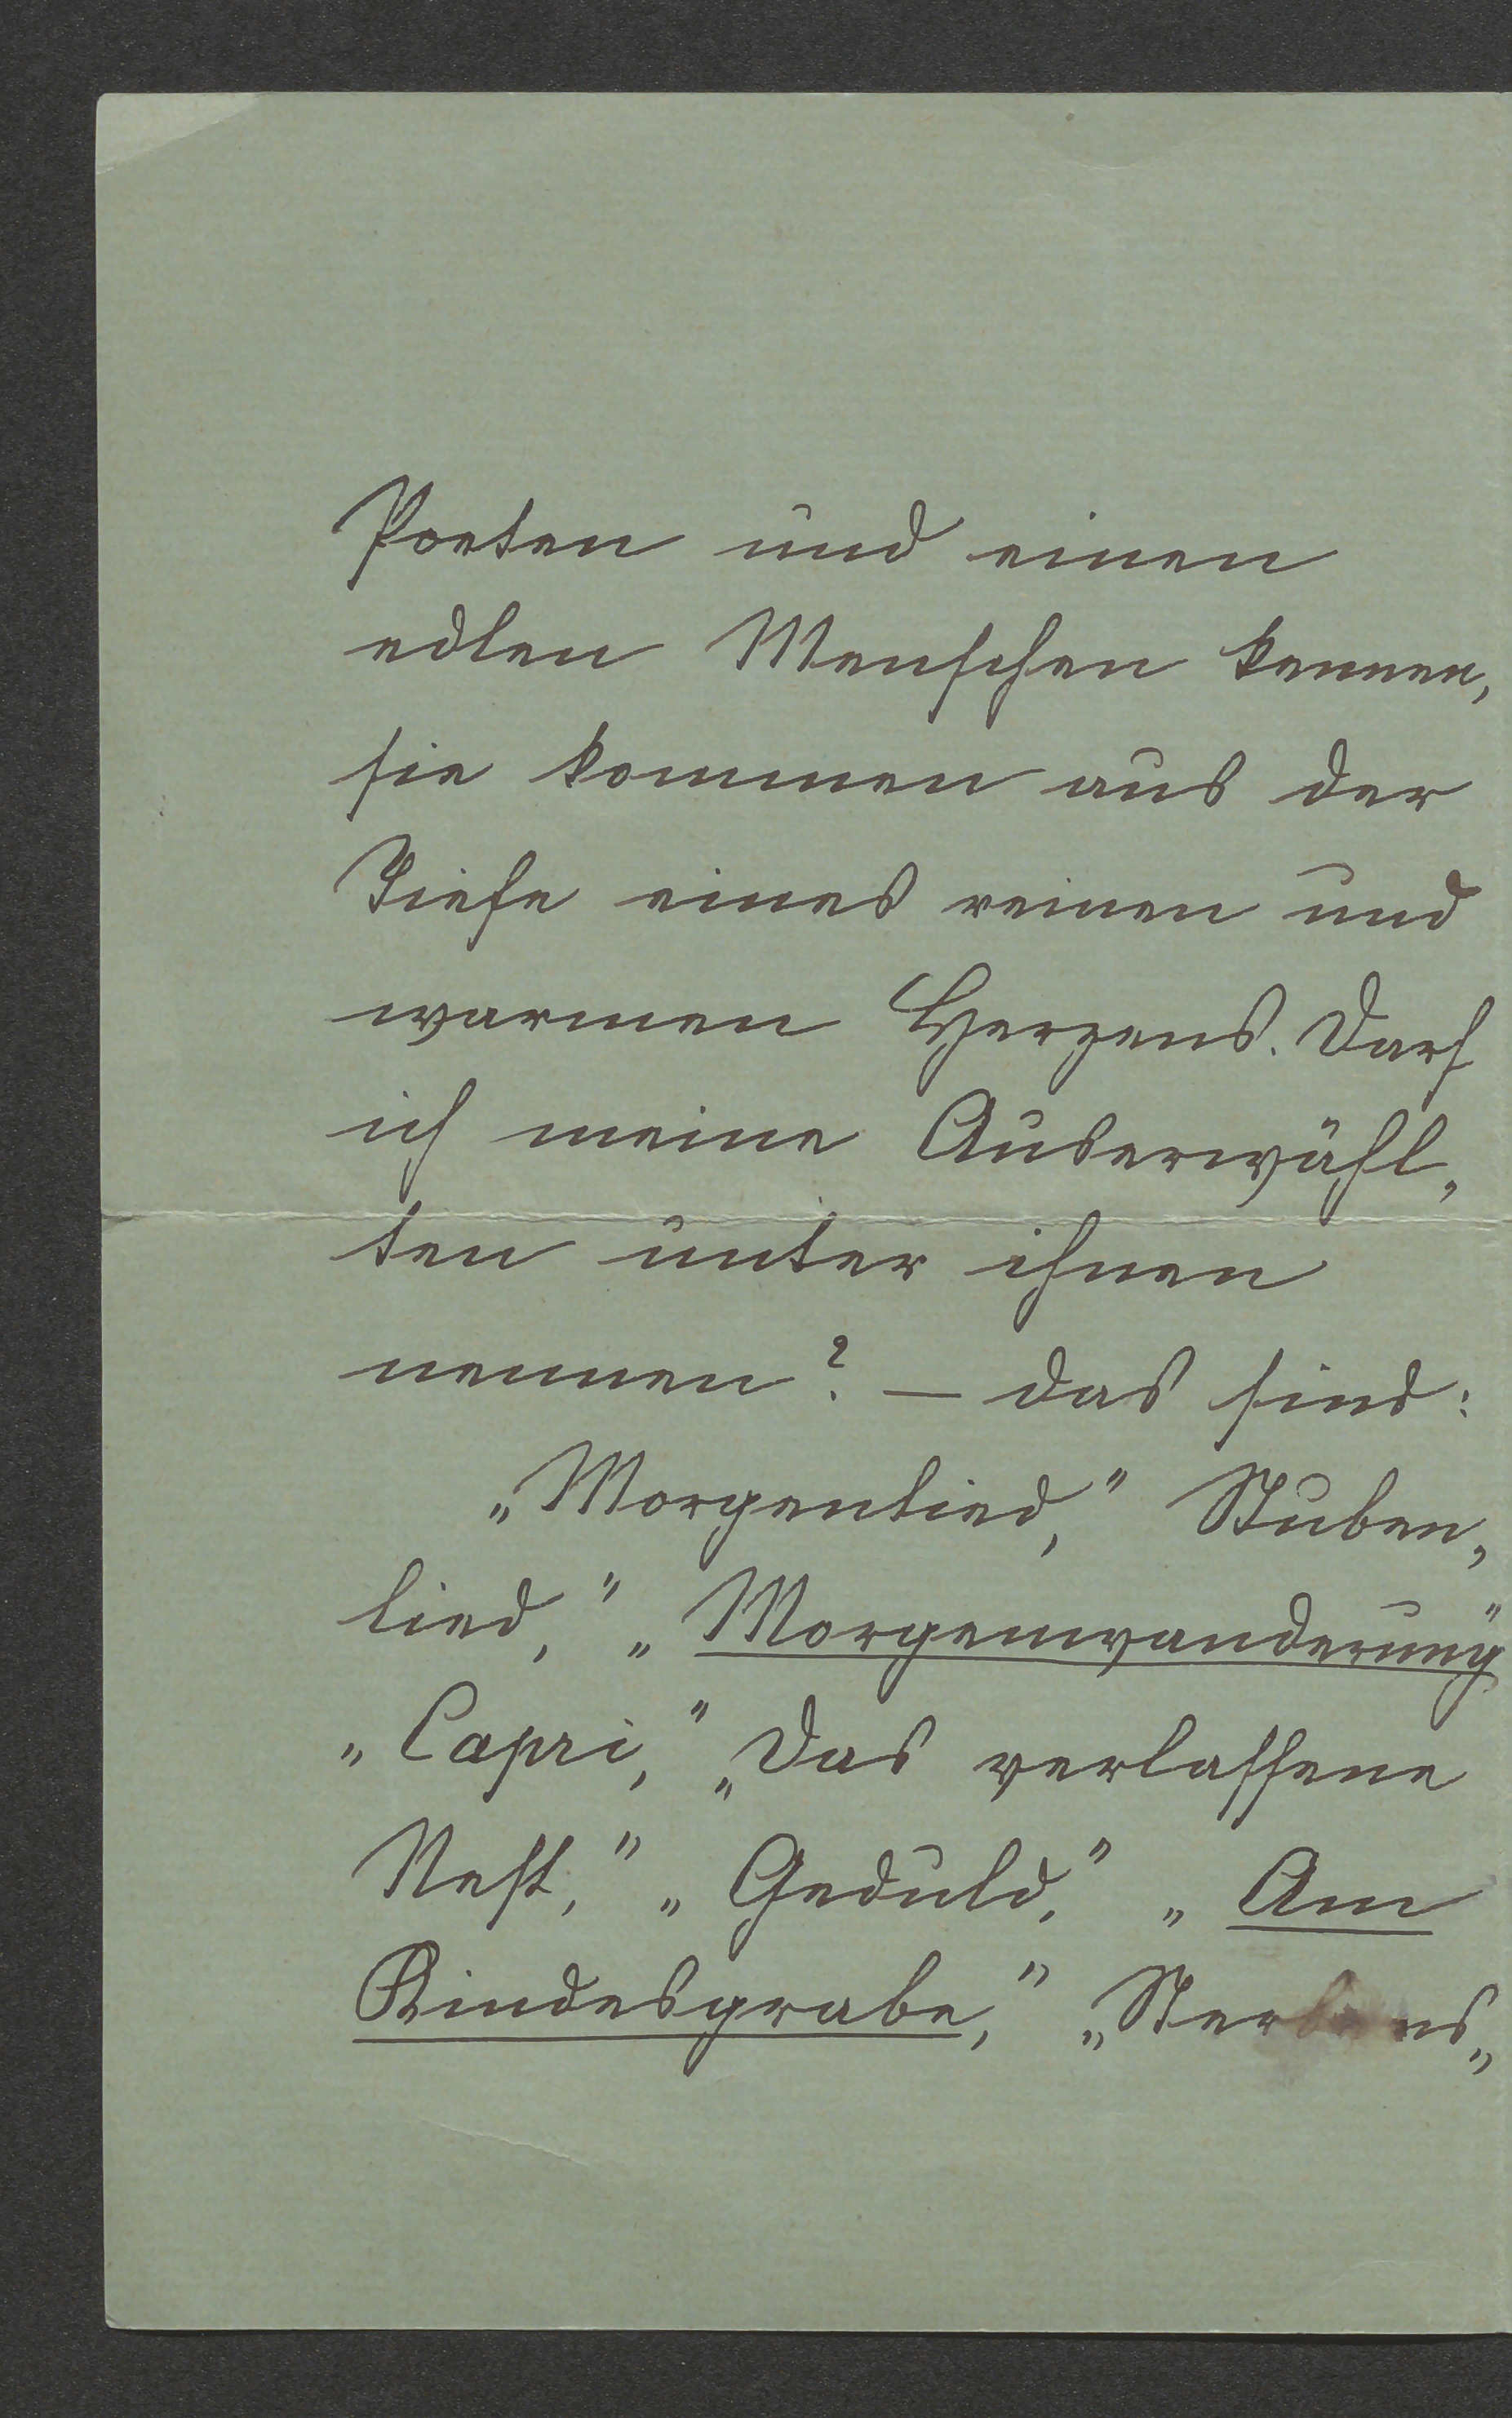 Poeten und einen
edlen Menschen kennen,
sie kommen aus der
Tiefe eines reinen und
warmen Herzens. Darf
ich meine Auserwähl„
ten unter ihnen
nennen? — das sind:
„Morgenlied,“ Stuben„
lied,“ „Morgenwanderung“
„Capri,“ „Das verlassene
Nest,“ „Geduld,“ „Am
Kindesgrabe,“ „Sterbens„